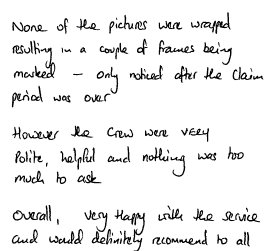 None of the pictures were wrapped
resulting in a couple of frames being
marked – only noticed after the claim
period was over
However the crew were very
polite, helpful and nothing was too
much to ask
Overall, very Happy with the service
and would definitely recommend to all